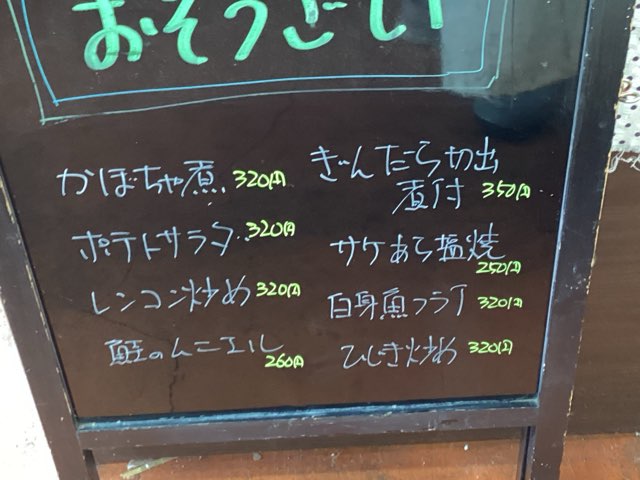 おそうざい
かぼちゃ煮 320円
ポテトサラダ 320円
レンコン炒め 320円
鮭のムニエル 260円
ぎんだら切出
煮付 350円
サケあら塩焼 250円
白身魚フライ 320円
ひじき炒め 320円